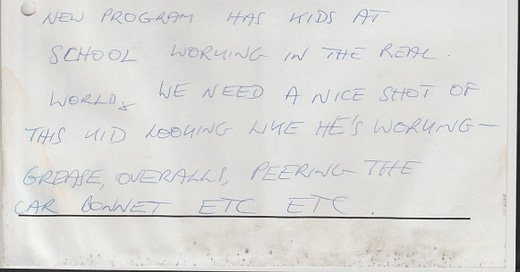 NEW PROGRAM HAS KIDS AT
SCHOOL WORKING IN THE REAL
WORLD, WE NEED A NICE SHOT OF
THIS KID LOOKING LIKE HE'S WORKING—
GREASE, OVERALLS, PEERING THE
CAR BONNET ETC ETC.